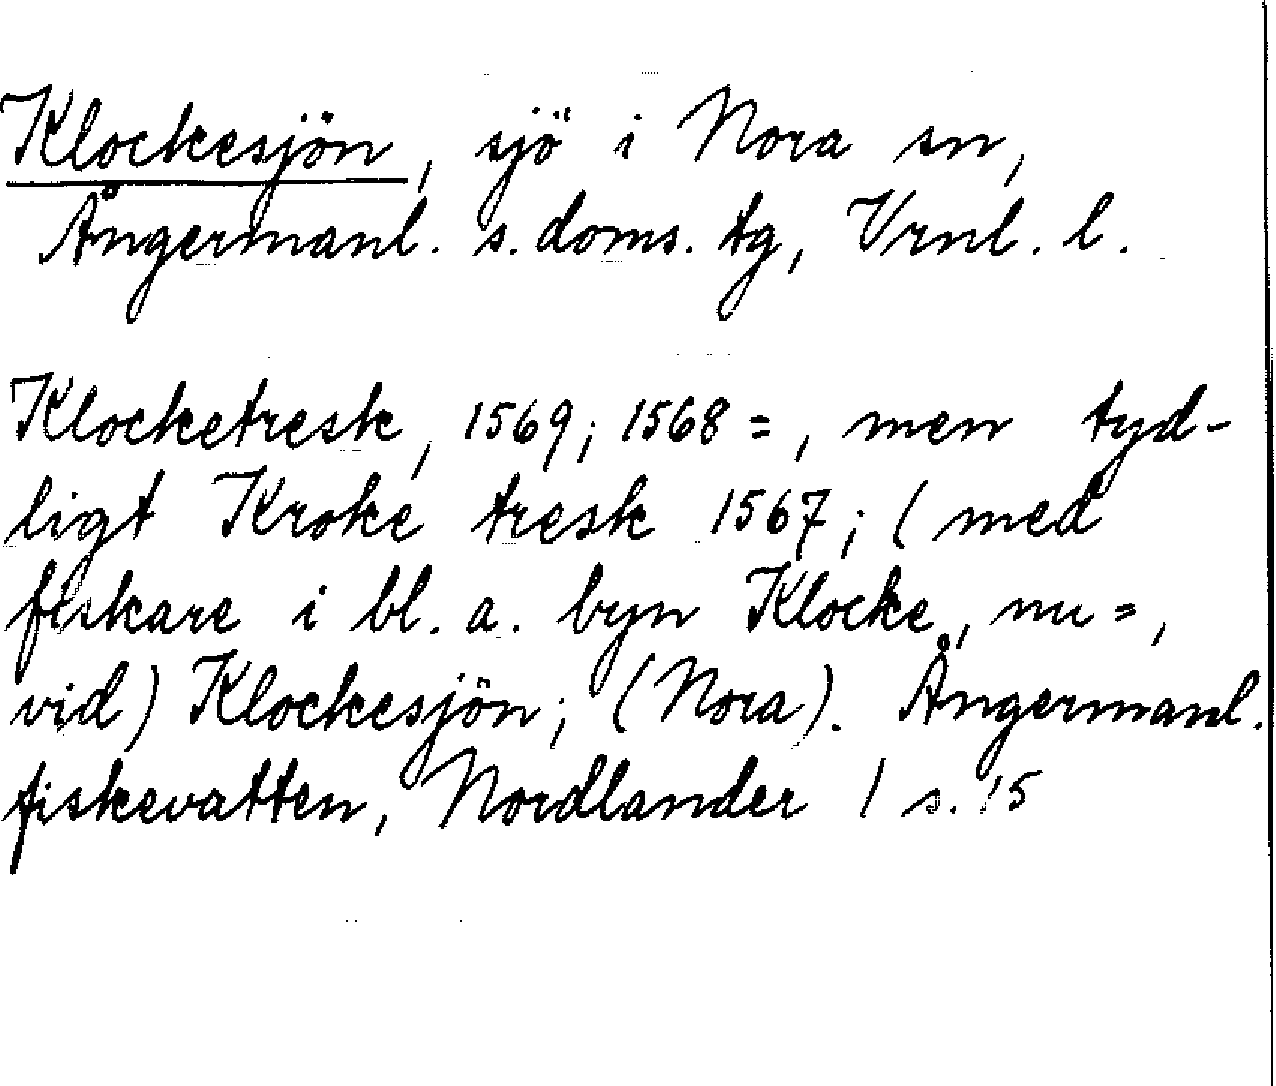 Klockesjön, sjö i Nora sn,
Ångermanl. s. doms. tg, Vrnl. l.
Klocketresk, 1569; 1568 =, men tyd-
ligt Kroke tresk 1567; (med
fiskare i bl. a. byn Klocke, nu =,
vid) Klockesjön; (Nora). Ångermanl.
fiskevatten, Nordlander 1 s. 15